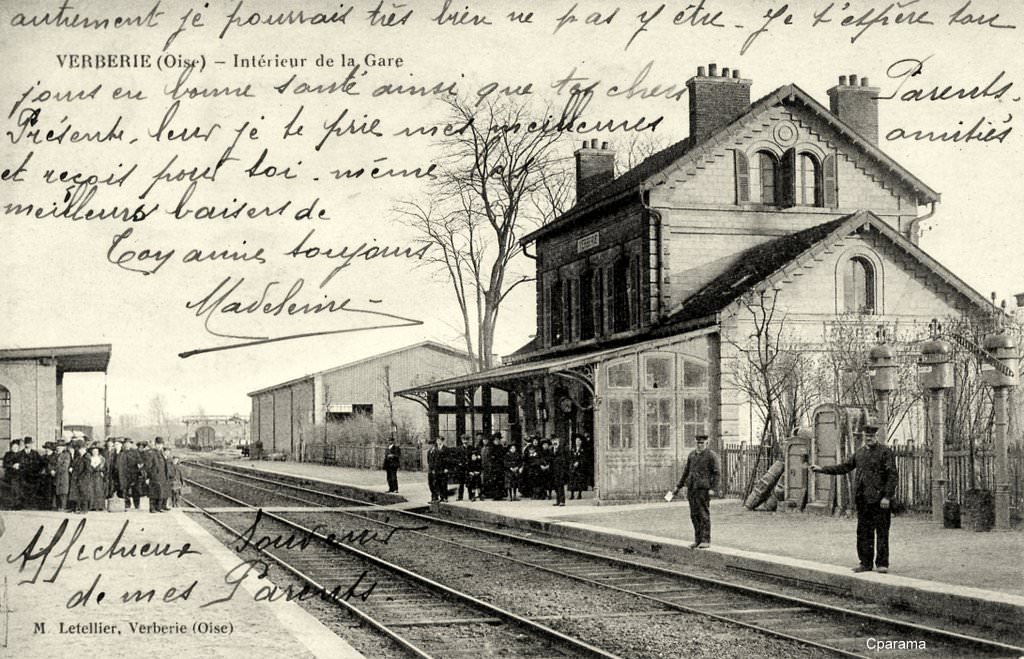 autrement je pourrais très bien ne pas y être. Je t'espère tou
VERBERIE (Oise) – Intérieur de la Gare
jours en bonne santé ainsi que tes chers Parents.
Présente leur je te prie mes meilleures amitiés
et reçois pour toi même
meilleurs baisers de
annie toujours
Madeleine
VERBERIE
Affectueux Souvenir
de mes Parents.
M. Letellier, Verberie (Oise)
Cparama